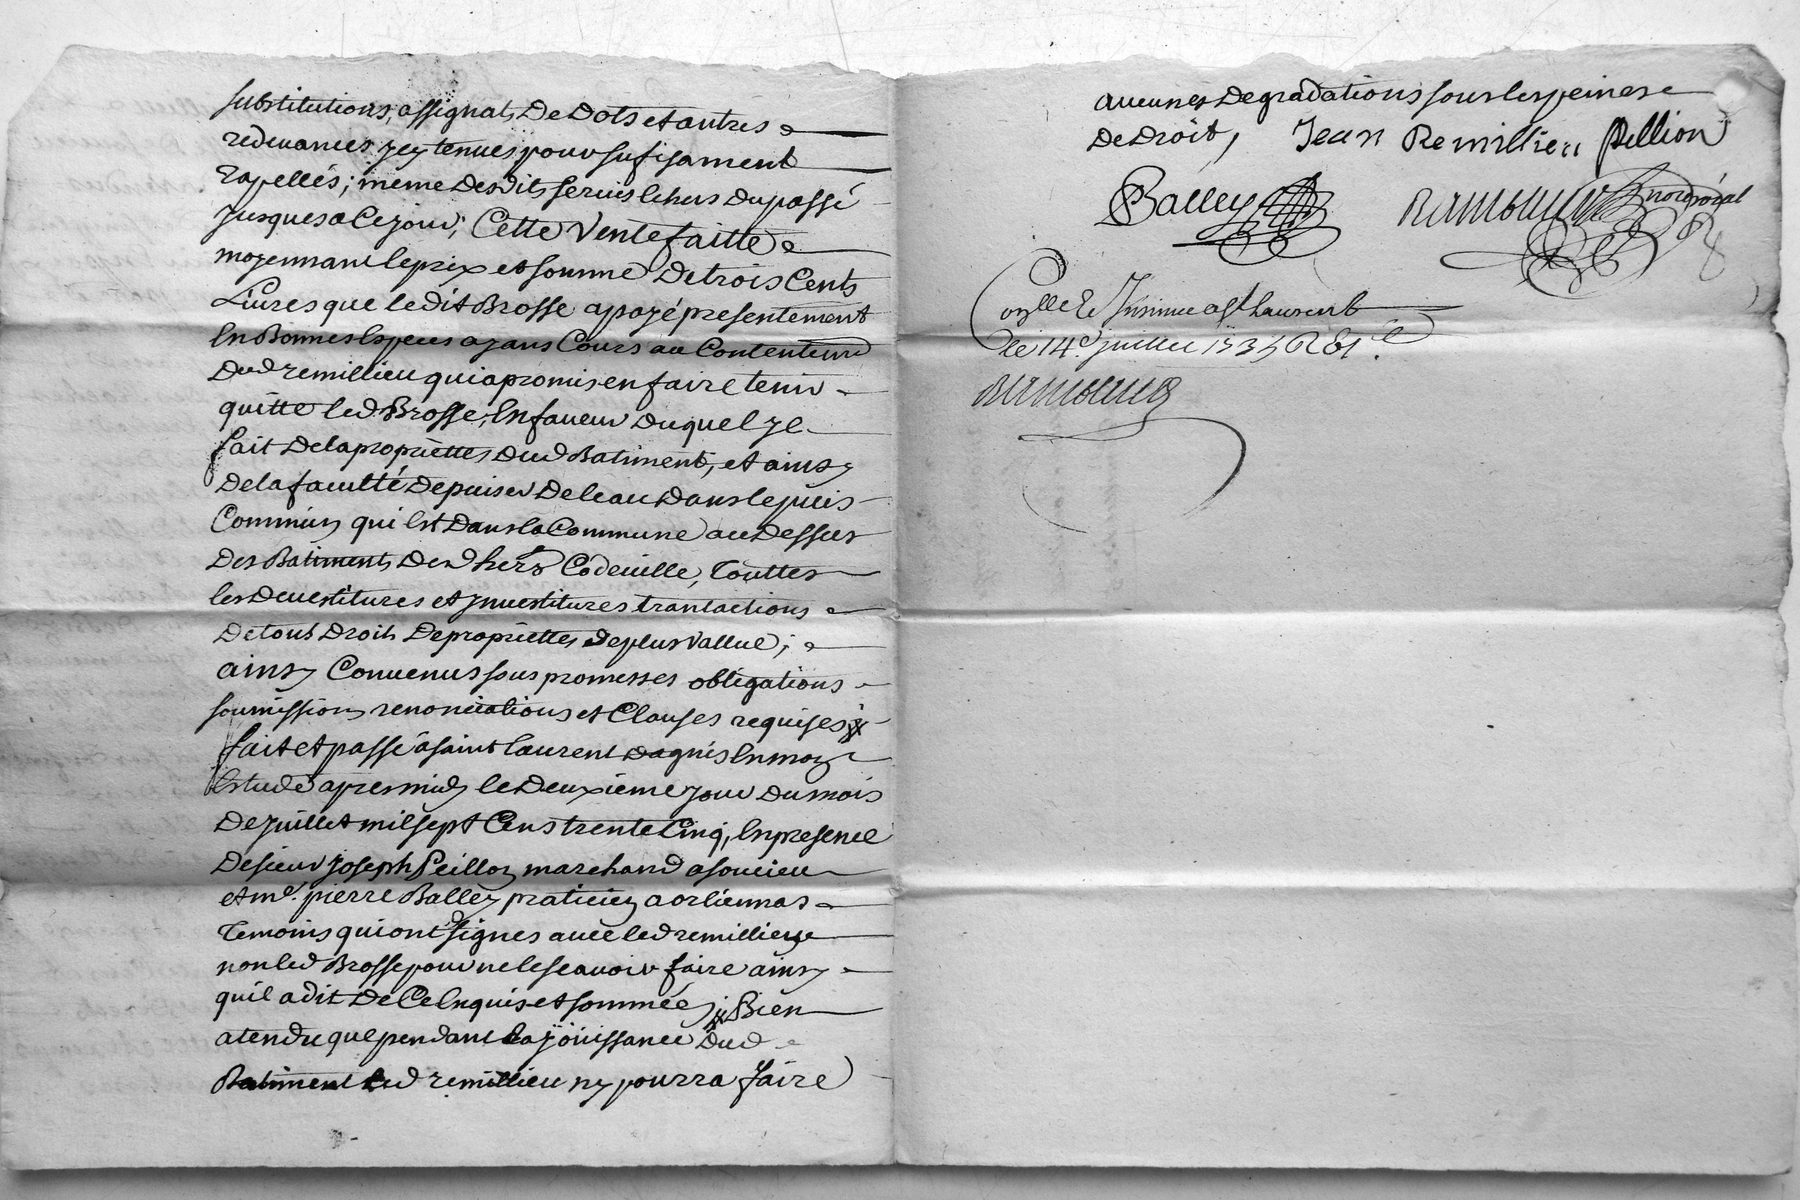 substitutions, assignats De Dots et autres
redevances jcy tenues pour sufisament
Rapellés; meme Desdits servis Echus Dupassé
jusques a Ce jour; Cette Vente faitte
moyennant le prix et somme De trois Cents
Livres que ledit Brosse a payé presentement
En Bonnes Especes ayans Cours au Contentemt
Dud remillieu qui a promis en faire tenir
quitte led Brosse, En faveur Duquel Jl
fait De la propriettes Dud Batiment, et ainsy
De la faculté De puiser De leau Dans le puis
Commun qui Est Dans la Commune au Dessus
Des Batiments Desd hers Codeville, Touttes
les Devestitures et jnvestitures translactions
De tous Droits De propriettes De plus Vallue;
ainsy Convenus sous promesses obligations
soumissions renonciations et Clauses requises
fait et passé a saint Laurent Dagnis En mon
Estude apres midy le Deuxieme jour Du mois
De juillet mil sept Cens trente Cinq, En presence
De sieur joseph Peillon marchand a soucieu
et me. pierre Balley praticien a orliennas
Temoins qui ont signes avec led remillieu
non led Brosse pour ne le scavoir faire ainsy
quil a dit De Ce Enquis et sommée Bien
atendu que pendant La jöuissance Dud
Batiment Led remillieu ny pourra faire
aucunes Degradations sous les peines
De Droit, Jean Remillieu Pellion
Balley
not royal
Conllé & Insinué a St Laurent
le 14e juillet 1735